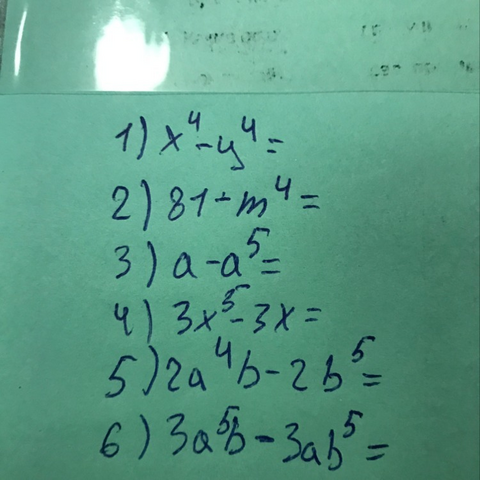 1) x⁴-y⁴=
2) 81-m⁴=
3) a-a⁵=
4) 3x⁵-3x=
5) 2a⁴b-2b⁵=
6) 3a⁵b-3ab⁵=